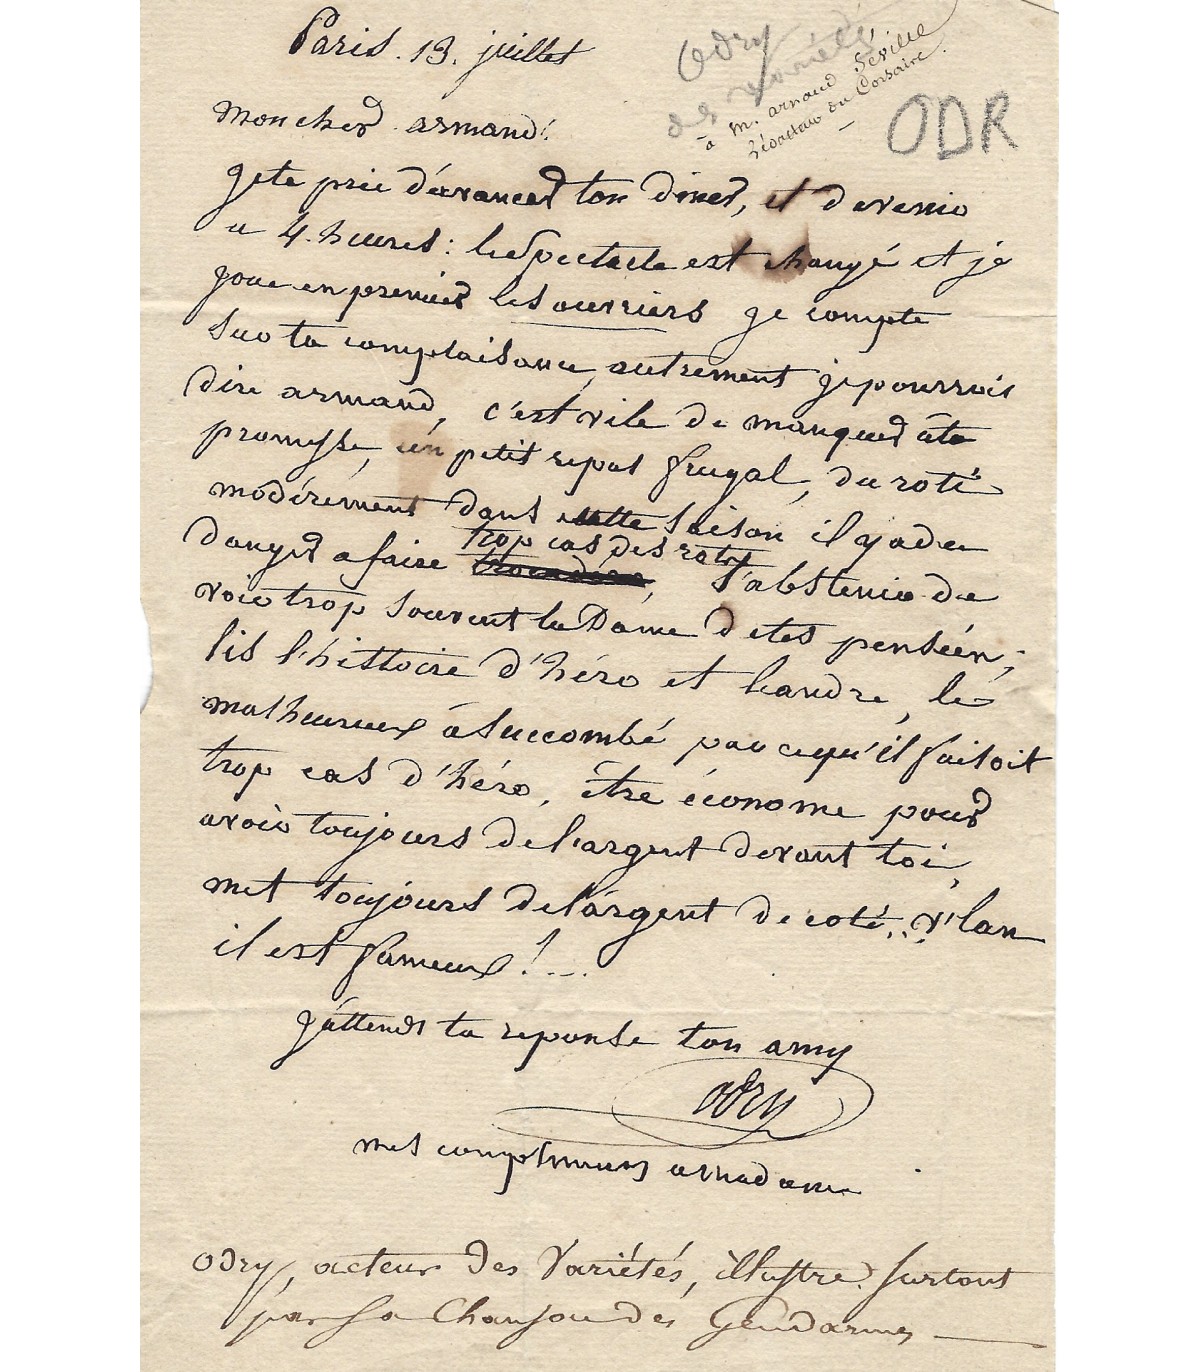 Paris. 13. juillet
Odry
des Variétés
à M. armand Séville
rédacteur du Corsaire.
ODR
mon cher armand!
je te prie d'évancer ton diner, et de venir
a 4. heures: le Spectacle est changé et je
joue en premier les ouvriers je compte
sur ta complaisance, autrement je pourrois
dire armand, c'est vile de manquer à ta
promesse, un petit repas frugal, du roti
modérément dans cette saison il y a du
danger a faire trop cas des rots, s'abstenir de
voir trop souvent la Dame de tes pensées;
lis l'histoire d'héro et Léandre, le
malheureux à succombé par ce qu'il faisoit
trop cas d'héro, être économe pour
avoir toujours de l'argent devant toi,
met toujours de l'argent de coté... v'lan
il est fameux!...
j'attends ta reponse ton amy
odry
mes complimens a madame
Odry, acteur des Variétés, illustre surtout
par sa Chanson des Gendarmes